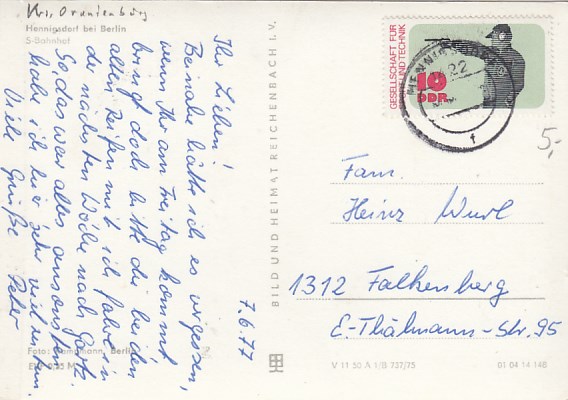 Krs. Oranienburg
Hennigsdorf bei Berlin
S-Bahnhof
7.6.77
Ihr Lieben!
Beinahe hätte ich es vergessen,
wenn Ihr am Freitag kommt
bringt doch bitte die beiden
alten Reifen mit ich fahre in
der nächsten Woche nach
So, das war alles ansonsten
habe ich hier sehr viel zu tun.
Viele Grüße Peter
Foto: Berlin
BILD UND HEIMAT REICHENBACH I. V.
GESELLSCHAFT FÜR
SPORT UND TECHNIK
10
DDR
HENNIGSDORF
22
f
5,-
Fam.
Heinz Wurl
1312 Falkenberg
E.-Thälmann-Str. 95
V 11 50 A 1/B 737/75
01 04 14 148